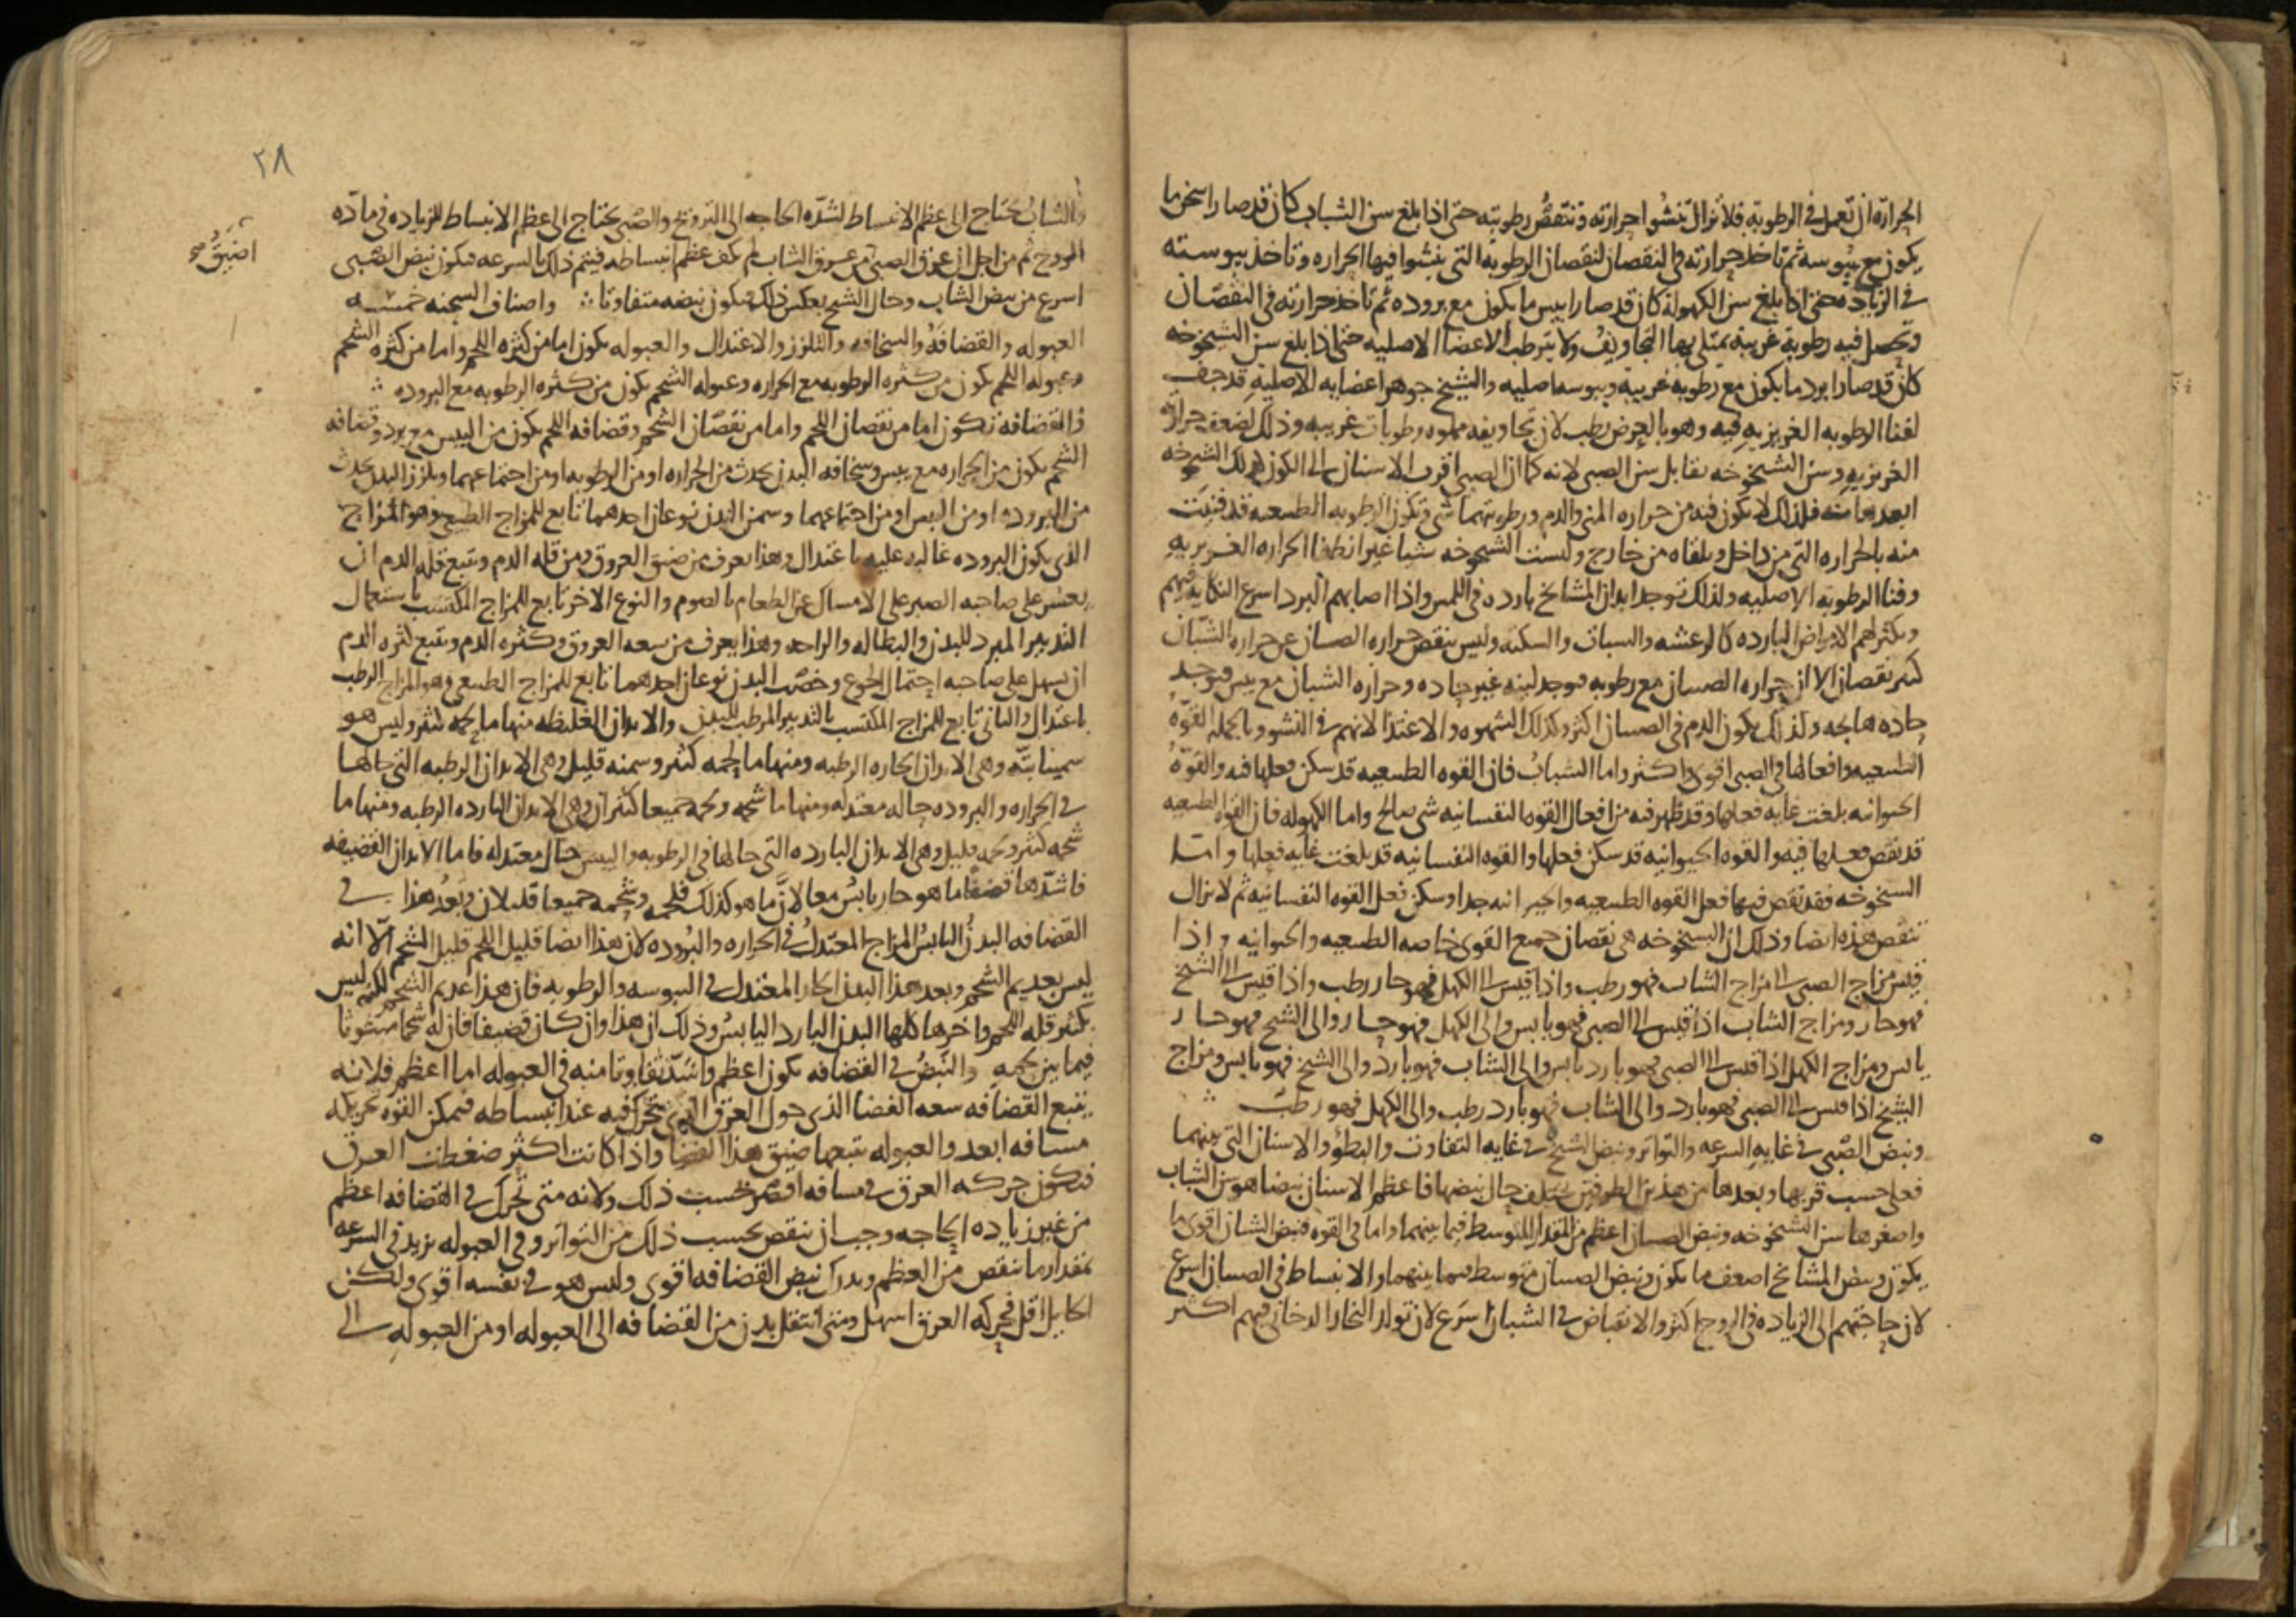 الحرارة ان تعمل في الرطوبة فلا تزال تنشوا حرارته وتنتقص رطوبته حتى اذا بلغ سن الشباب كان قد صار اسخن ما
يكون مع يبوسه ثم تاخذ حرارته في النقصان لنقصان الرطوبه التي ينشوا فيها الحراره وتاخذ يبوسته
في الزياده حتى اذا بلغ سن الكهولة كان قد صار ايبس ما يكون مع بروده ثم تاخذ حرارته في النقصان
وتحصل فيه رطوبة غريبة تمتلي بها التجاويف ولا يترطب الاعضا الاصليه حتى اذا بلغ سن الشيخوخه
كان قد صار ابرد ما يكون مع رطوبه غريبة ويبوسه اصليه والشيخ جوهر اعضايه الاصلية قد جف
لفنا الرطوبه الغريزيه فيه وهو بالعرض رطب لان تجاويفه مملوه رطوبات غريبه وذلك لضعف حرارته
الغريزيه وسن الشيخوخه يقابل سن الصبي لانه كما ان الصبي اقرب الاسنان الى الكون كذلك الشيخوخه
ابعدها منه فلذلك لا يكون فيه من حراره المني والدم ورطوبتهما شي وتكون الرطوبه الطبيعيه قد فنيت
منه بالحراره التي من داخل وبلقاه من خارج وليست الشيخوخه شيا غير انطفا الحراره الغريزيه
وفنا الرطوبه الاصليه ولذلك توجد ابدان المشايخ بارده في اللمس واذا اصابهم البرد اسرع النكايه فيهم
ويكثر لهم الامراض البارده كالرعشه والسبات والسكته وليس ينقص حراره الصبيان عن حراره الشبان
كثير نقصان الا ان حراره الصبيان مع رطوبه فتوجد لينه غير حاده وحراره الشبان مع يبس فتوجد
حاده هايجه ولذلك يكون الدم في الصبيان اكثر وكذلك الشهوه والاغتذا لانهم في النشو وبالجمله القوة
الطبيعيه وافعالها في الصبي اقوى واكثر واما الشباب فان القوه الطبيعيه قد سكن فعلها فيه والقوة
الحيوانيه بلغت غايه فعلها وقد ظهر فيه من افعال القوه النفسانيه شي صالح واما الكهوله فان القوه الطبيعيه
قد نقص فعلها فيه والقوه الحيوانيه قد سكن فعلها والقوه النفسانيه قد بلغت غايه فعلها واما
الشيخوخه فقد نقص فيها فعل القوه الطبيعيه والحيوانيه جدا وسكن فعل القوه النفسانيه ثم لا تزال
تنقص هذه ايضا وذلك ان الشيخوخه هي نقصان جميع القوى خاصه الطبيعيه والحيوانيه واذا
قيس مزاج الصبي الى مزاج الشاب فهو رطب واذا قيس الى الكهل فهو حار رطب واذا قيس الى الشيخ
فهو حار ومزاج الشاب اذا قيس الى الصبي فهو يابس والى الكهل فهو حار والى الشيخ فهو حار
يابس ومزاج الكهل اذا قيس الى الصبي فهو بارد يابس والى الشاب فهو بارد والى الشيخ فهو يابس ومزاج
الشيخ اذا قيس الى الصبي فهو بارد والى الشاب فهو بارد رطب والى الكهل فهو رطب
ونبض الصبي في غايه السرعه والتواتر ونبض الشيخ في غايه التفاوت والبطؤ والاسنان التي بينهما
فعلى حسب قربها وبعدها من هذين الطرفين يختلف حال نبضها فاعظم الاسنان نبضا هو سن الشباب
واصغرها سن الشيخوخه ونبض الصبيان اعظم من المقدار المتوسط فيما بينهما واما في القوه فنبض الشبان اقوى ما
يكون ونبض المشايخ اضعف ما يكون ونبض الصبيان متوسط فيما بينهما والانبساط في الصبيان اسرع
لان حاجتهم الى الزياده في الروح اكثر والانقباض في الشبان اسرع لان تولد البخار الدخاني فيهم اكثر
٢٨
والشاب يحتاج الى اعظم الانبساط لشدة الحاجه الى الترويح والصبي يحتاج الى عظم الانبساط للزياده في مادة
الروح ثم من اجل ان عرق الصبي من عروق الشاب لم يكف عظم انبساطه فيتمم ذلك بالسرعه فيكون نبض الصبي
اضيق صح
اسرع من نبض الشاب وحال الشيخ بعكس ذلك فيكون نبضه متفاوتا واصناف السحنه خمسه
العبوله والقضافة والسخافه والتلزز والاعتدال والعبوله يكون اما من كثره اللحم واما من كثره الشحم
وعبوله اللحم يكون من كثره الرطوبه مع الحراره وعبوله الشحم يكون من كثره الرطوبه مع البروده
والقضافه تكون اما من نقصان اللحم واما من نقصان الشحم وقضافه اللحم يكون من اليبس مع برد وقضافه
الشحم يكون من الحراره مع يبس وسخافه البدن يحدث من الحراره او من الرطوبه او من اجتماعهما وتلزز البدن يحدث
من البروده او من اليبس او من اجتماعهما وسمن البدن نوعان احدهما تابع للمزاج الطبيعي وهو المزاج
الذي يكون البروده غالبه عليه باعتدال وهذا يعرف من ضيق العروق ومن قله الدم ويتبع قله الدم ان
يعسر على صاحبه الصبر على الامساك عن الطعام بالصوم والنوع الاخر تابع للمزاج المكتسب باستعمال
التدبير المبرد للبدن والبطاله والراحه وهذا يعرف من سعه العروق وكثره الدم ويتبع كثره الدم
ان يسهل على صاحبه احتمال الجوع وخصب البدن نوعان احدهما تابع للمزاج الطبيعي وهو المزاج الرطب
باعتدال والثاني تابع للمزاج المكتسب بالتدبير المرطب للبدن والابدان الغليظه منها ما لحمه كثير وليس هو
سمينا بتة وهي الابدان الحاره الرطبه ومنها ما لحمه كثير وسمنه قليل وهي الابدان الرطبه التي حالها
في الحراره والبروده حاله معتدله ومنها ما شحمه ولحمه جميعا كثيران وهي الابدان البارده الرطبه ومنها ما
شحمه كثير ولحمه قليل وهي الابدان البارده التي حالها في الرطوبه واليبس حال معتدله فاما الابدان القضيفه
فاشدها قضفا ما هو حار يابس معا لان ما هو كذلك فلحمه وشحمه جميعا قليلان وبعد هذا في
القضافه البدن اليابس المزاج المعتدل في الحراره والبروده لان هذا ايضا قليل اللحم قليل الشحم الا انه
ليس بعديم الشحم وبعد هذا البدن الحار المعتدل في اليبوسه والرطوبه فان هذا عديم الشحم لكنه ليس
بكثير قله اللحم واخرها كلها البدن البارد اليابس وذلك ان هذا وان كان قضيفا فان له شحما مبثوثا
فيما بين لحمه والنبض في القضافه يكون اعظم واشد تفاوتا منه في العبوله اما اعظم فلانه
يتبع القضافه سعه الفضا الذي حول العرق الذي يتحرك فيه عند انبساطه فيمكن القوة تحريكه
مسافه ابعد والعبوله يتبعها ضيق هذا الفضا واذا كانت اكثر ضغطت العرق
فتكون حركه العرق في مسافه اقصر بحسب ذلك ولانه متى تحرك في القضافه اعظم
من غير زياده الحاجه وجب ان ينقص بحسب ذلك من التواتر وفي العبوله يزيد في السرعه
بمقدار ما ينقص من العظم ويدرك نبض القضافه اقوى وليس هو في نفسه اقوى ولكن
الحايل اقل فحركه العرق اسهل ومتى انتقل بدن من القضافه الى العبوله او من العبوله الى